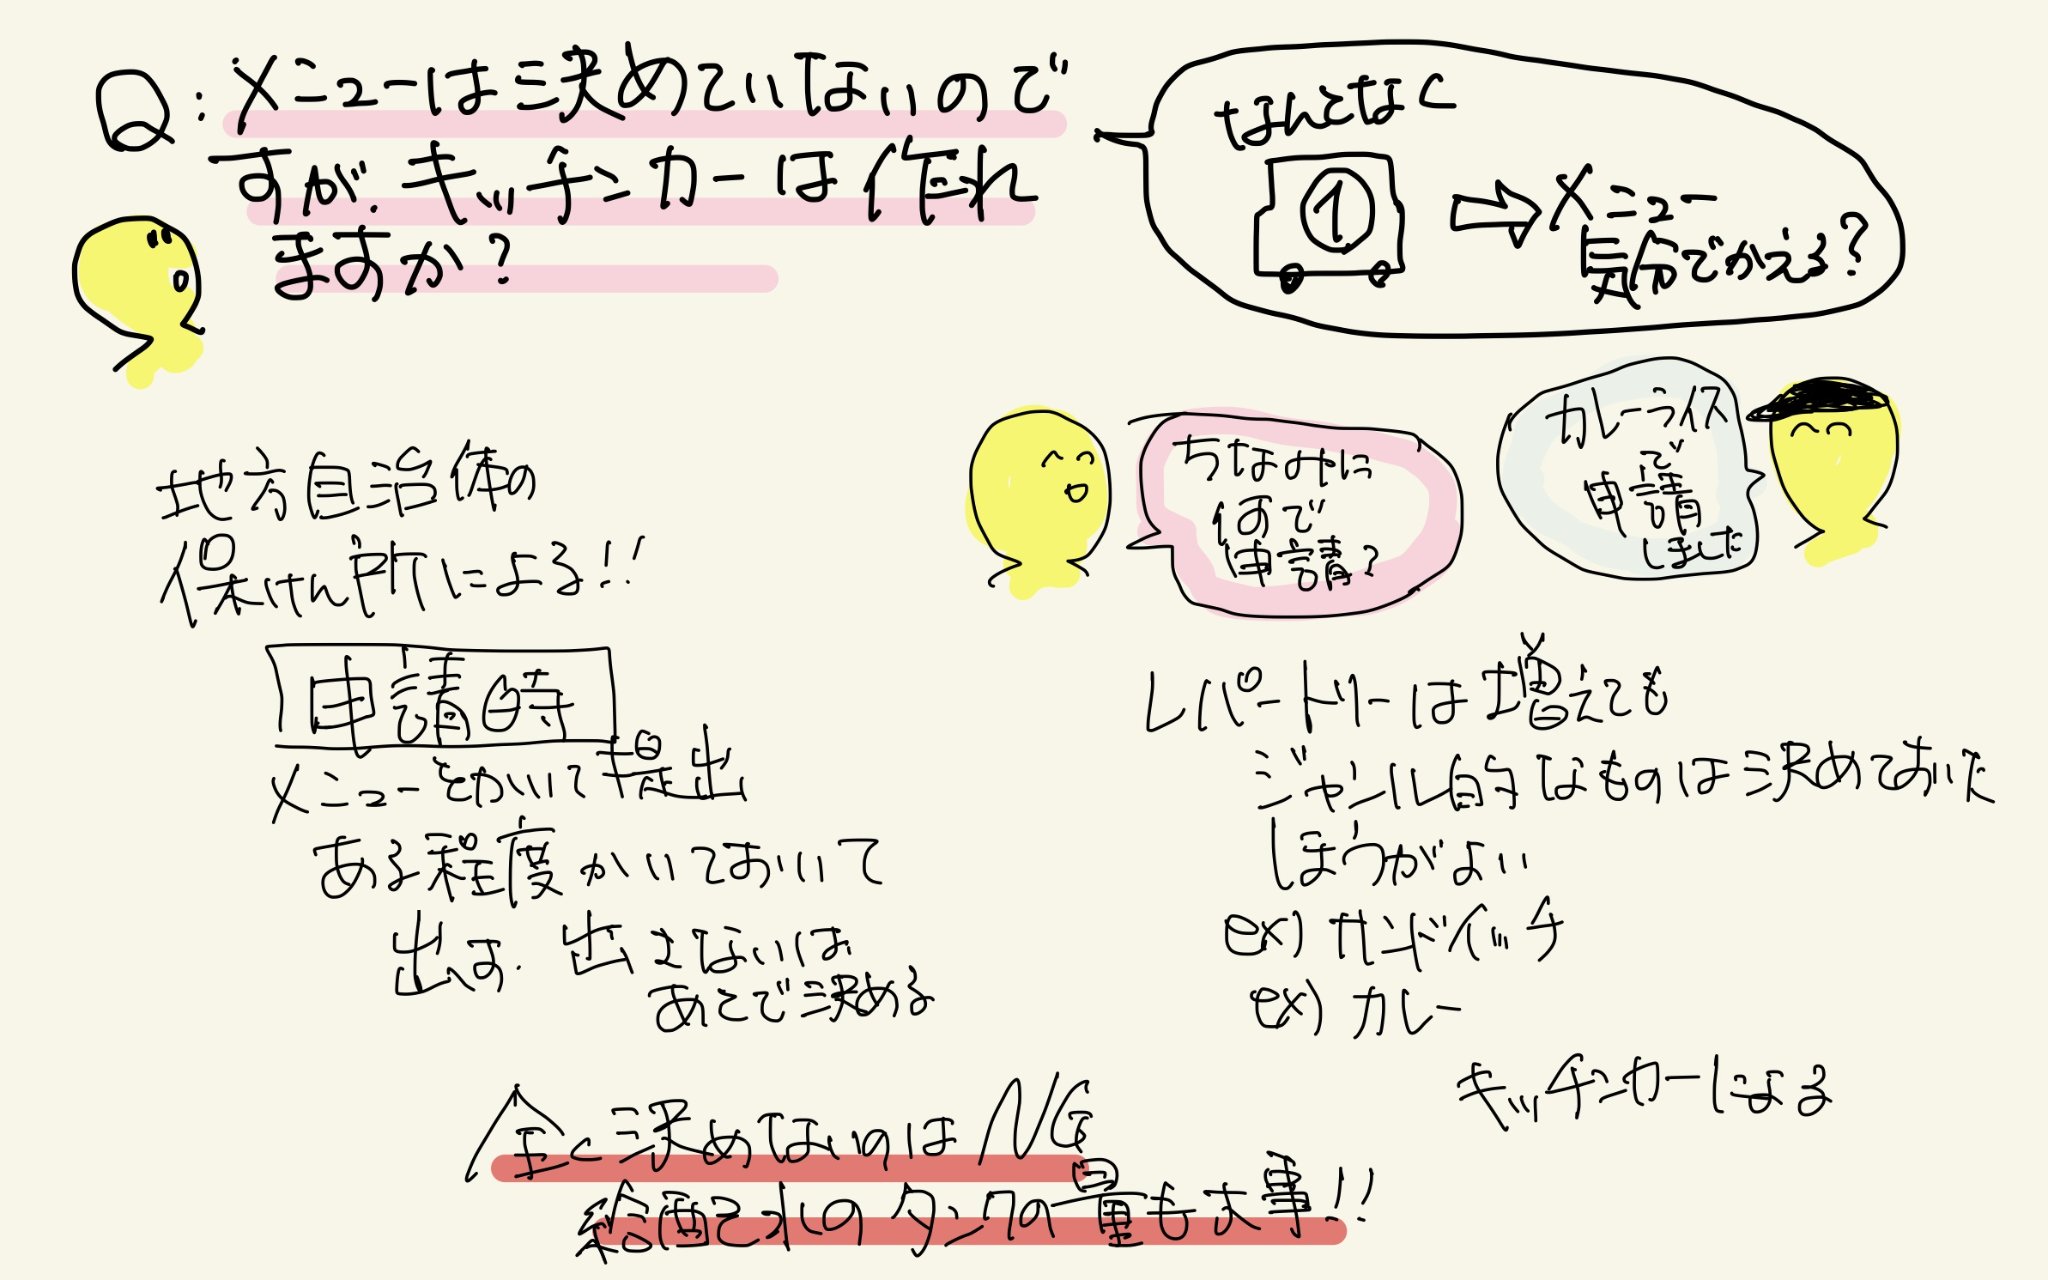 Q:メニューは決めていないので
すが、キッチンカーは作れ
ますか?
なんとなく
1
メニュー
気分でかえる?
ちなみに
何で
申請?
カレーライス
で
申請
しました
地方自治体の
保けん所による!!
申請時
メニューをかいて提出
ある程度かいておいて
出す、出さないは
あとで決める
レパートリーは増えても
ジャンル的なものは決めておいた
ほうがよい
ex) サンドイッチ
ex) カレー
キッチンカーによる
全く決めないのはNG
のタンクの量も大事!!